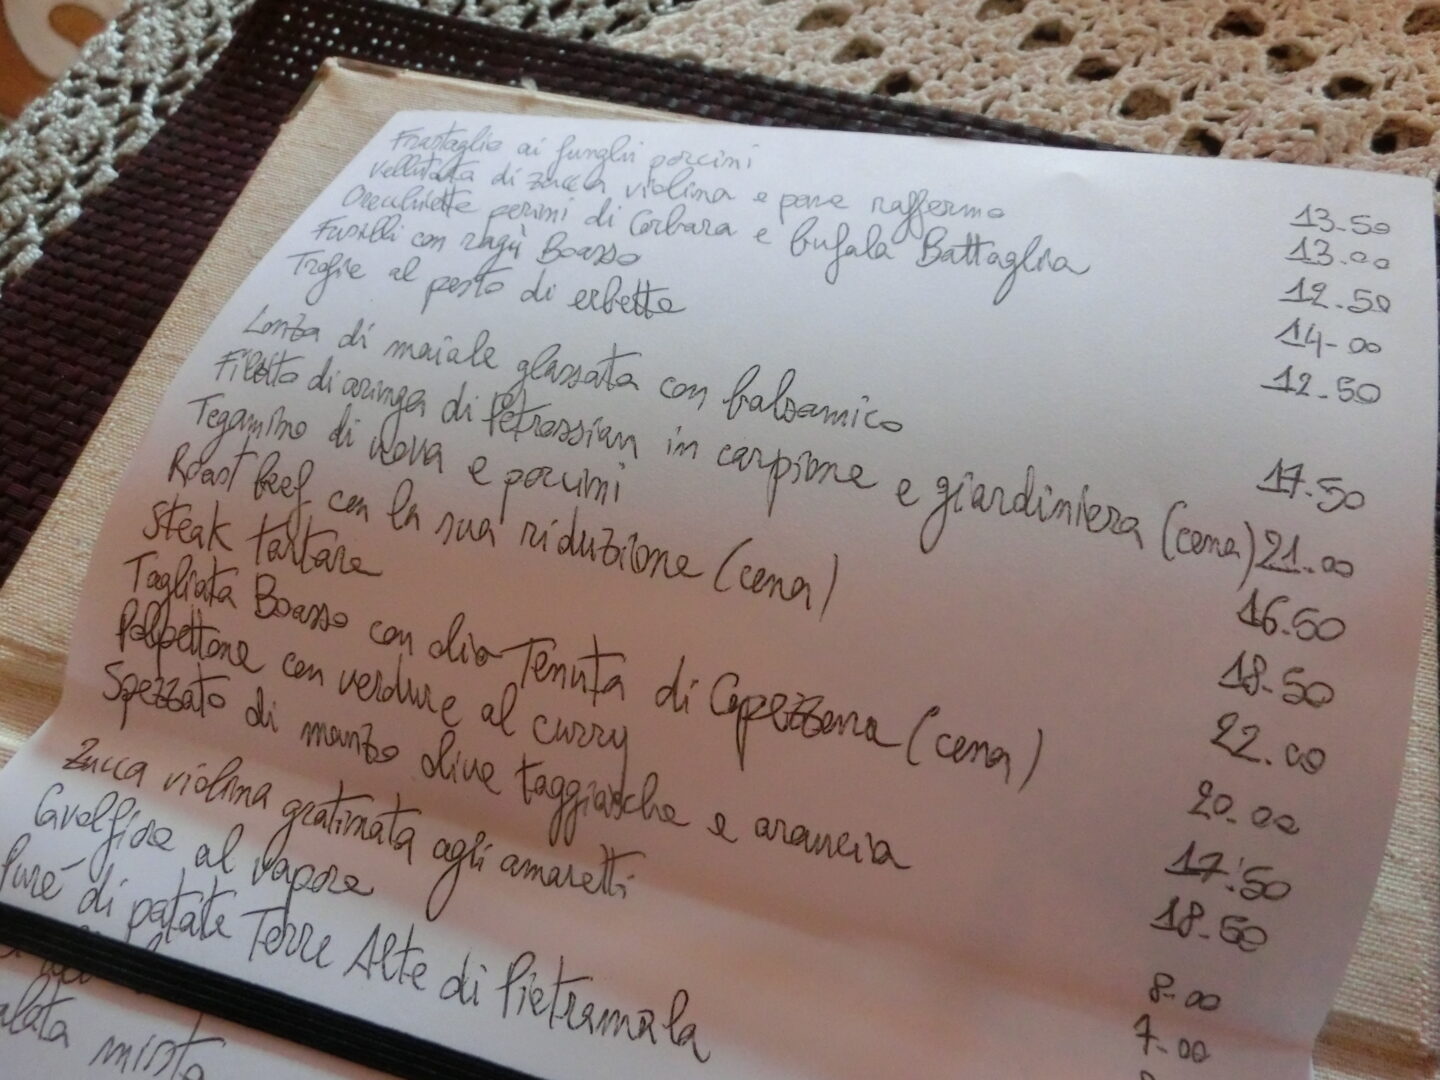 Frastaglio ai funghi porcini 13.50
Vellutata di zucca violina e pane raffermo 13.00
Orecchiette perini di Corbara e bufala Battaglia 12.50
Fusilli con ragù Boasso 14-00
Trofie al pesto di erbette 12.50
Lonza di maiale glassata con balsamico 17.50
Filetto di aringa di Petrossian in carpione e giardiniera (cena) 21.00
Tegamino di uova e porcini 16.50
Roast beef con la sua riduzione (cena) 18.50
Steak tartare 22.00
Tagliata Boasso con olio Tenuta di Capezzana (cena) 20.00
Polpettone con verdure al curry 17.50
Spezzato di manzo olive taggiasche e arancia 18.50
Zucca violina gratinata agli amaretti 8-00
Cavolfiore al vapore 7-00
Purè di patate Terre Alte di Pietramala
misto